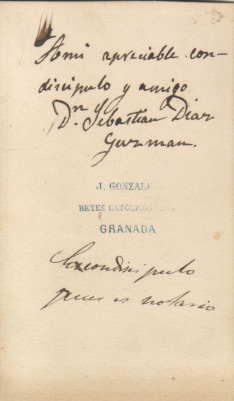 A mi apreciable con-
discipulo y amigo
Dn Sebastian Diaz
Guzman.
J. GONZALE
REYES CATÓLICOS
GRANADA
Excondiscipulo
pues es notario